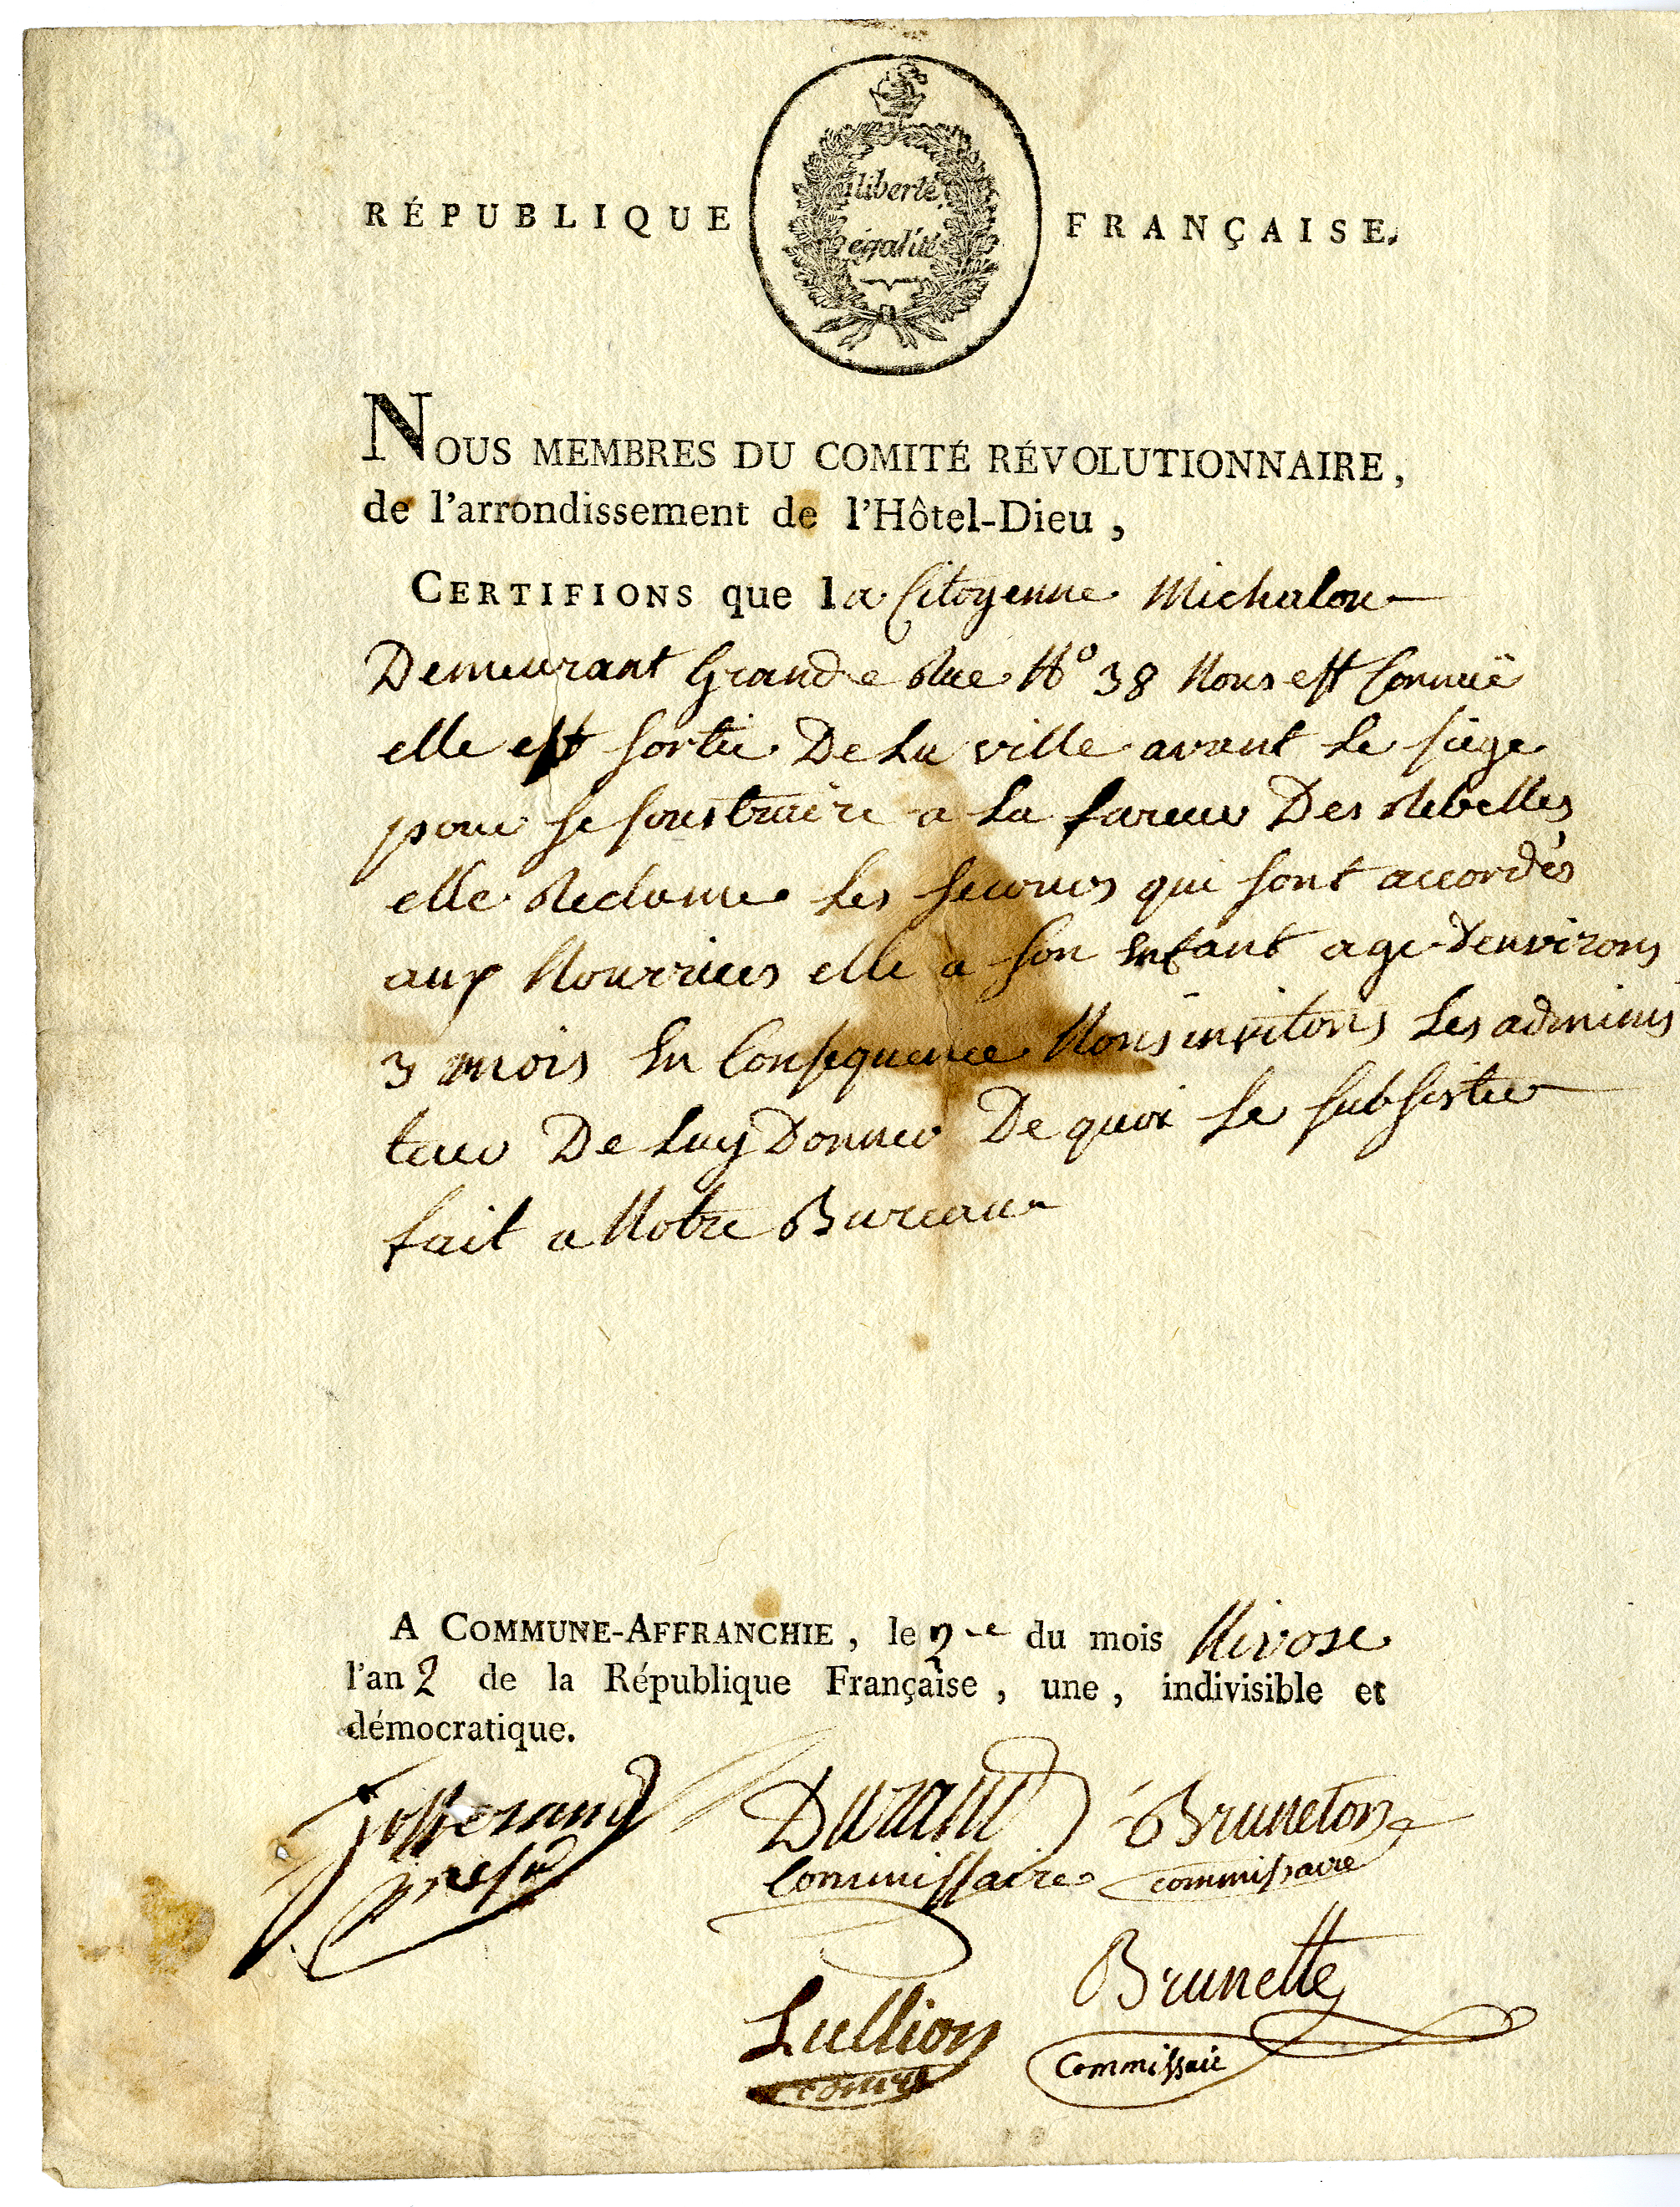 liberté,
égalité
RÉPUBLIQUE FRANÇAISE.
NOUS MEMBRES DU COMITÉ RÉVOLUTIONNAIRE,
de l'arrondissement de l'Hôtel-Dieu,
CERTIFIONS que la Citoyenne Michalon
Demeurant Grande Rue N° 38 Nous est Connuë
elle est sortie De La ville avant Le siege
pour se soustraire a La fureur Des Rebelles
elle Reclame Les secours qui sont accordés
aux Nourrices elle a son Enfant age d'environs
3 mois En Consequence Nous invitons Les adminis
teur De Luy Donner De quoi se subsister
fait a Notre Bureau
A COMMUNE-AFFRANCHIE, le 2 du mois Nivose
l'an 2 de la République Française, une, indivisible et
démocratique.
Durand Bruneton
Commissaire commissaire
Brunette
Lullion
Commissaire